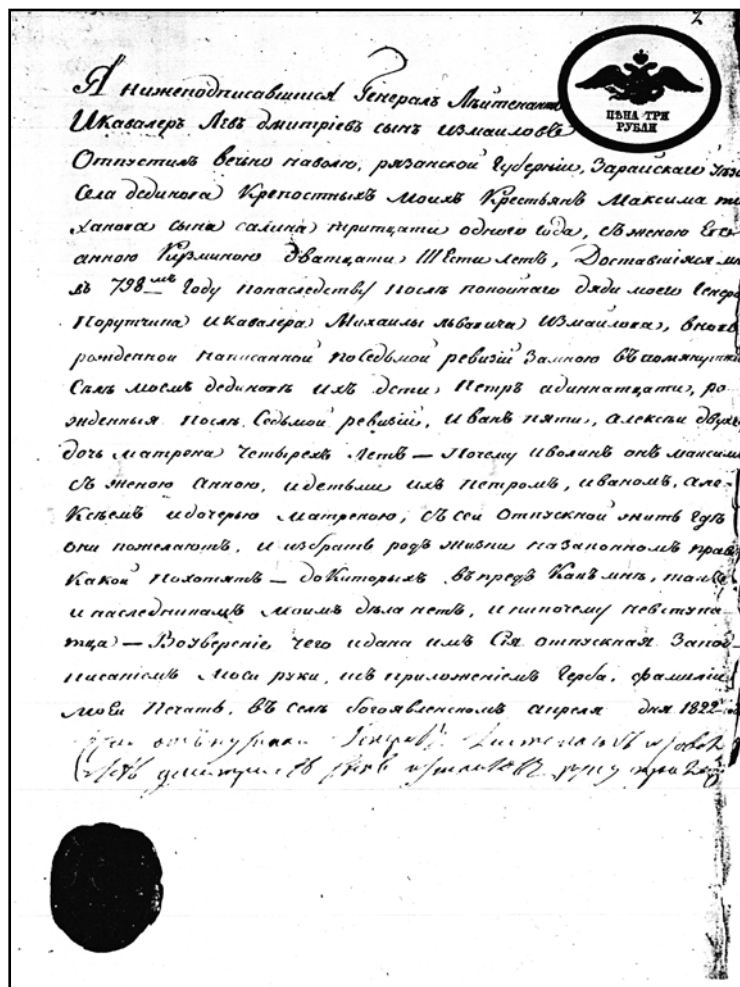 2
ЦѢНА ТРИ
РУБЛИ
Я нижеподписавшиися Генералъ Лѣитенантъ
И Кавалеръ Левъ дмитріевъ сынъ измаиловъ
Отпустилъ вечьно наволю, рязанской Губерніи, Зарайскаго
Села дединова Крепостныхъ моихъ Крестьянъ Максима
сына салина тритцати одного года, съ женою
анною Кузминою дватцати Шести летъ, Доставшіяся
въ 798мъ Году понаследству после покойнаго дяди моего
Порутчика и кавалера Михаилы львовича Измаилова, вновь
рожденной написанной по Седьмой ревизіи За мною въ помянутомъ
Селѣ моемъ дединовѣ ихъ дети Петръ адиннатцати, ро-
жденныя послѣ Седьмой ревизіи, иванъ пяти, алексѣи двухъ,
дочь матрена Четырехъ Летъ — Почему иволинъ онъ максимъ
съ женою анною, идетьми ихъ петромъ, иваномъ, але-
Ксѣемъ идочерью матреною, съ сей Отпускной жить гдѣ
они пожелаютъ, и избрать родъ жизни на законномъ правѣ
какой похотятъ — до Которыхъ въпредъ Какъ мнѣ, такъ
и наследникамъ моимъ дѣла нетъ, и ни почему невступа-
тца — Воуверение чего идана имъ Сія отпускная За под-
писаниемъ моей руки, исъ приложеніемъ Герба, фамиліи
моей Печать, въ селѣ богоявленскомъ апреля дня 1822